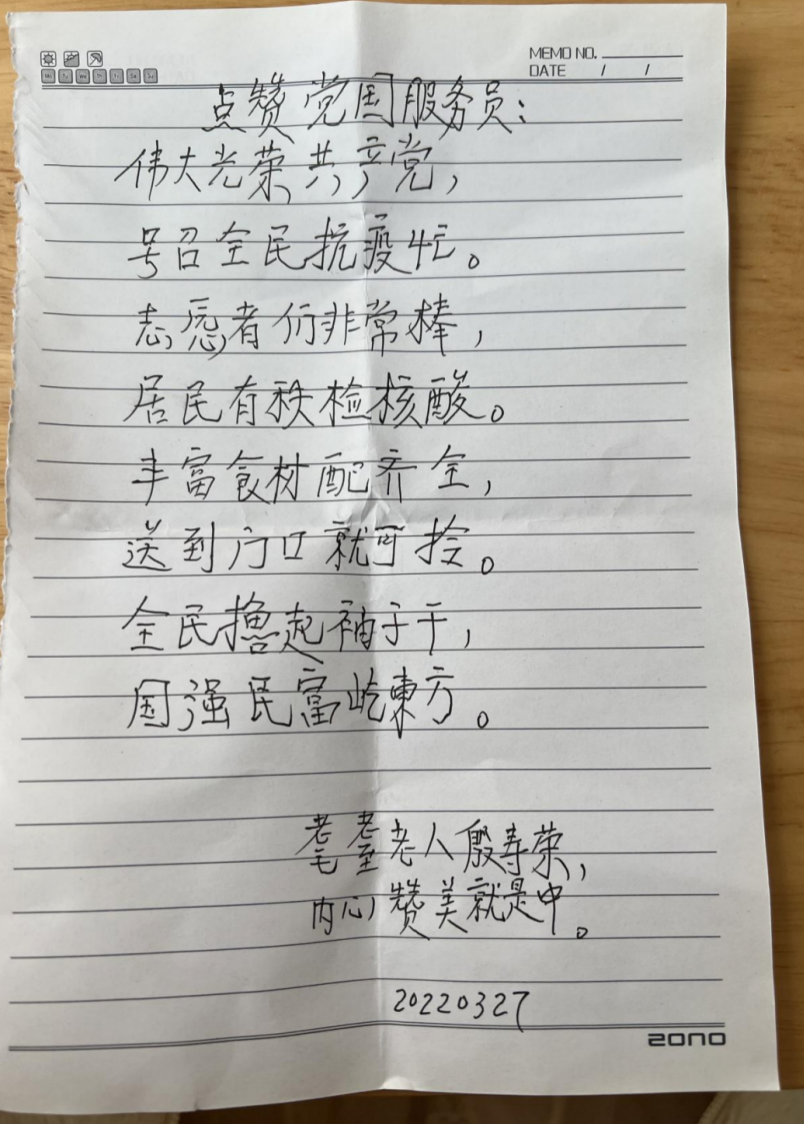 MEMO NO.
DATE / /
点赞党国服务员：
伟大光荣共产党，
号召全民抗疫忙。
志愿者们非常棒，
居民有秩检核酸。
丰富食材配齐全，
送到门口就可拎。
全民撸起袖子干，
国强民富屹東方。
耄耋老人殷寿荣，
内心赞美就是中。
20220327